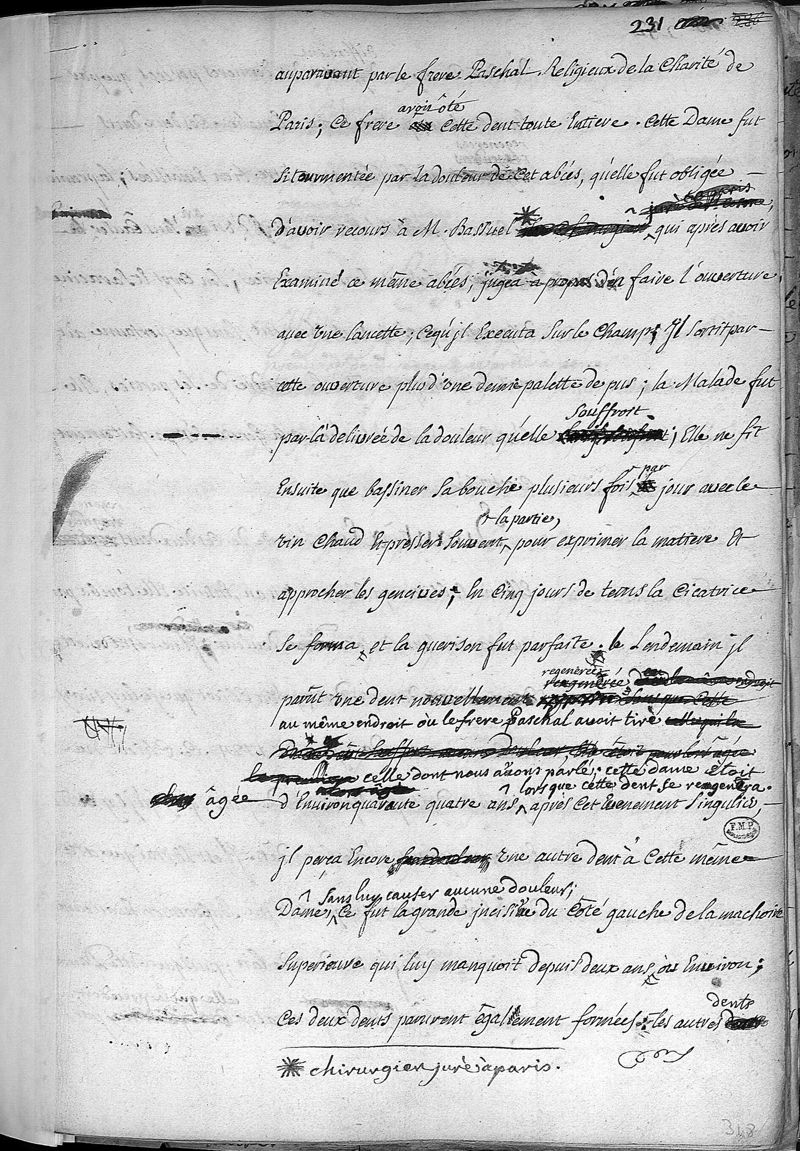 231
auparavant par le frere Paschal Religieux de la Charité de
avoit ôté
Paris; Ce frere cette dent toute Entiere. Cette Dame fut
si tourmentée par la douleur de Cet abcés, qu'elle fut obligée
d'avoir recours à M. Bassuel * qui apres avoir
Examiné ce même abcés, jugea a propos d'en faire l'ouverture
avec une lancette; Ce qu'jl Executa sur le Champ; Jl sortit par
cette ouverture plus d'une demie palette de pus; la Malade fut
souffroit
par-là delivrée de la douleur qu'elle ; Elle ne fit
par
Ensuite que bassiner sa bouche plusieurs fois jour avec le
la partie,
vin Chaud Et presser souvent, pour exprimer la matiere Et
approcher les gencives; En Cinq jours de tems la Cicatrice
se forma, et la guerison fut parfaite. le Lendemain jl
regenérée
parut une dent nouvellement
au même endroit ou le frere Paschal avoit tiré
celle dont nous avons parlé; cette dame étoit
âgée d'Environ quarante quatre ans lorsque cette dent se regenéra.
apres Cet Evenement singulier,
jl perça Encore une autre dent à Cette même
sans luy causer aucune douleur;
Dame, Ce fut la grande jncisive du Côté gauche de la machoire
superieure qui luy manquoit depuis deux ans ou Environ;
Ces deux dents parurent également formées: les autres dents
* chirurgien juré à paris.
348